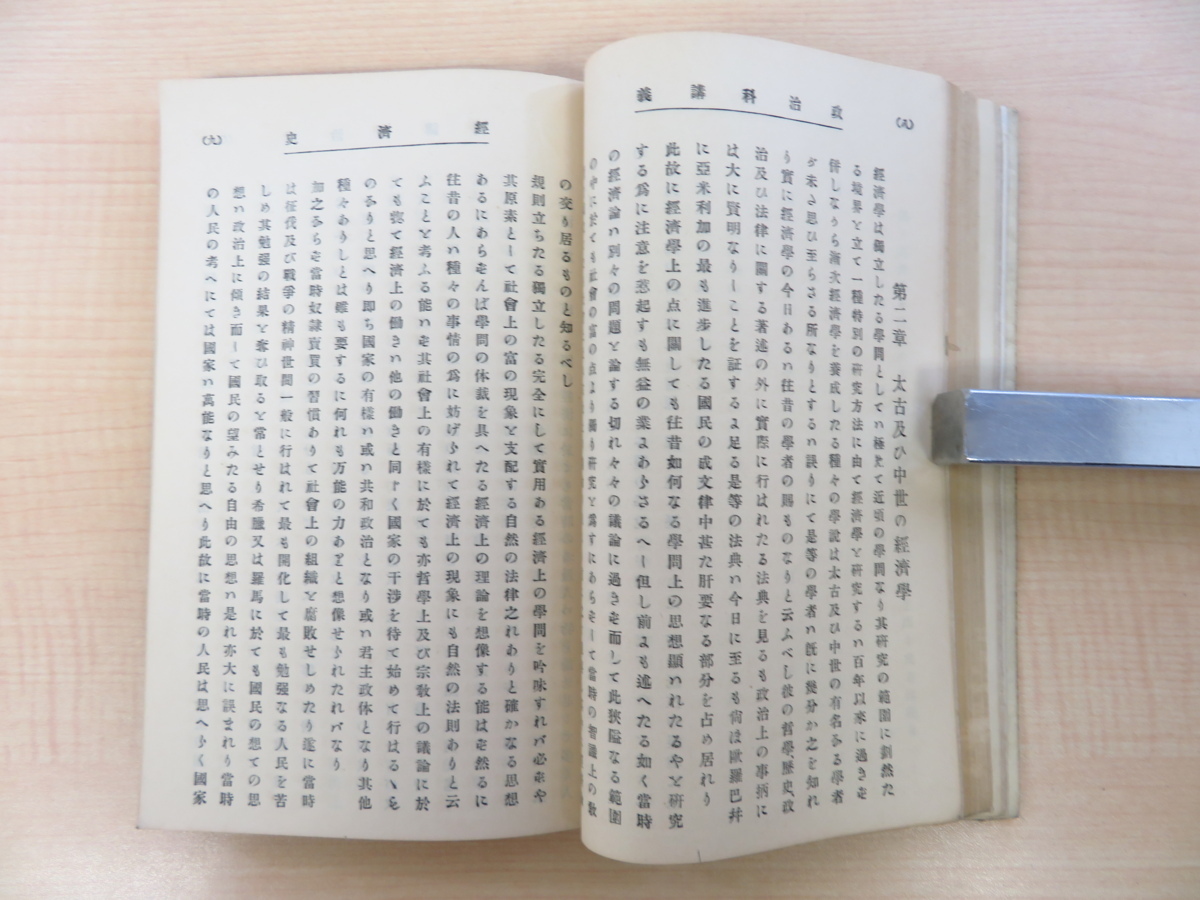 (八)
政治科講義
第二章 太古及ひ中世の經濟學
經濟學は獨立したる學問としてハ極めて近頃の學問なり其研究の範圍に劃然た
る境界を立て一種特別の研究方法に由て經濟學を研究するハ百年以來に過きを
併しなから漸次經濟學を養成したる種々の學說は太古及ひ中世の有名なる學者
か未さ思ひ至らさる所なりとするハ誤りにて是等の學者ハ旣に幾分か之を知れ
り實に經濟學の今日あるハ往昔の學者の賜ものなりと云ふべし彼の哲學歷史政
治及ひ法律に關する著述の外に實際に行はれたる法典を見るも政治上の事柄に
は大に賢明なりしことを証するよ足る是等の法典ハ今日に至るも尙ほ歐羅巴幷
に亞米利加の最も進步したる國民の成文律中甚た肝要なる部分を占め居れり
此故に經濟學上の点に關しても往昔如何なる學問上の思想顯ハれたるやを硏究
する爲に注意を惹起すも無益の業よあらさるへし但し前よも述へたる如く當時
の經濟論ハ別々の問題を論する切れ々々の議論に過きを而して此狹隘なる範圍
の中に於ても社會の富の点より獨り研究を爲すにあらをして當時の智識上の敎
(九)
經濟史
の交り居るものと知るべし
規則立ちたる獨立したる完全にして實用ある經濟上の學問を吟味すれバ必をや
其原素として社會上の富の現象を支配する自然の法律之れありと確かなる思想
あるにあらをんば學問の体裁を具へたる經濟上の理論を想像する能はを然るに
往昔の人ハ種々の事情の爲に妨げられて經濟上の現象にも自然の法則ありと云
ふことを考ふる能ハを其社會上の有樣に於ても亦哲學上及び宗敎上の議論に於
ても凡て經濟上の働きハ他の働きと同じく國家の干涉を待て始めて行はるへき
のなりと思へり卽ち國家の有樣ハ或ハ共和政治となり或ハ君主政体となり其他
種々ありしとは雖も要するに何れも万能の力ありと想像せられたれバなり
加之ならを當時奴隷賣買の習慣ありて社會上の組織を腐敗せしめたり遂に當時
は征伐及び戰爭の精神世間一般に行はれて最も開化して最も勉强なる人民を苦
しめ其勉强の結果を奪ひ取るを常とせり希臘又は羅馬に於ても國民の想ての思
想ハ政治上に傾き而して國民の望みたる自由の思想ハ是れ亦大に誤まれり當時
の人民の考へにては國家ハ萬能なりと思へり此故に當時の人民は思へらく國家